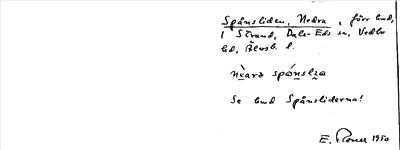 Spånsliden, Nedra, förr bnd,
i Strand, Dals-Eds sn, Vedbo
hd, Älvsb. l.
nèara spá́nslıa
Se bnd Spånsliderna!
E. 1950